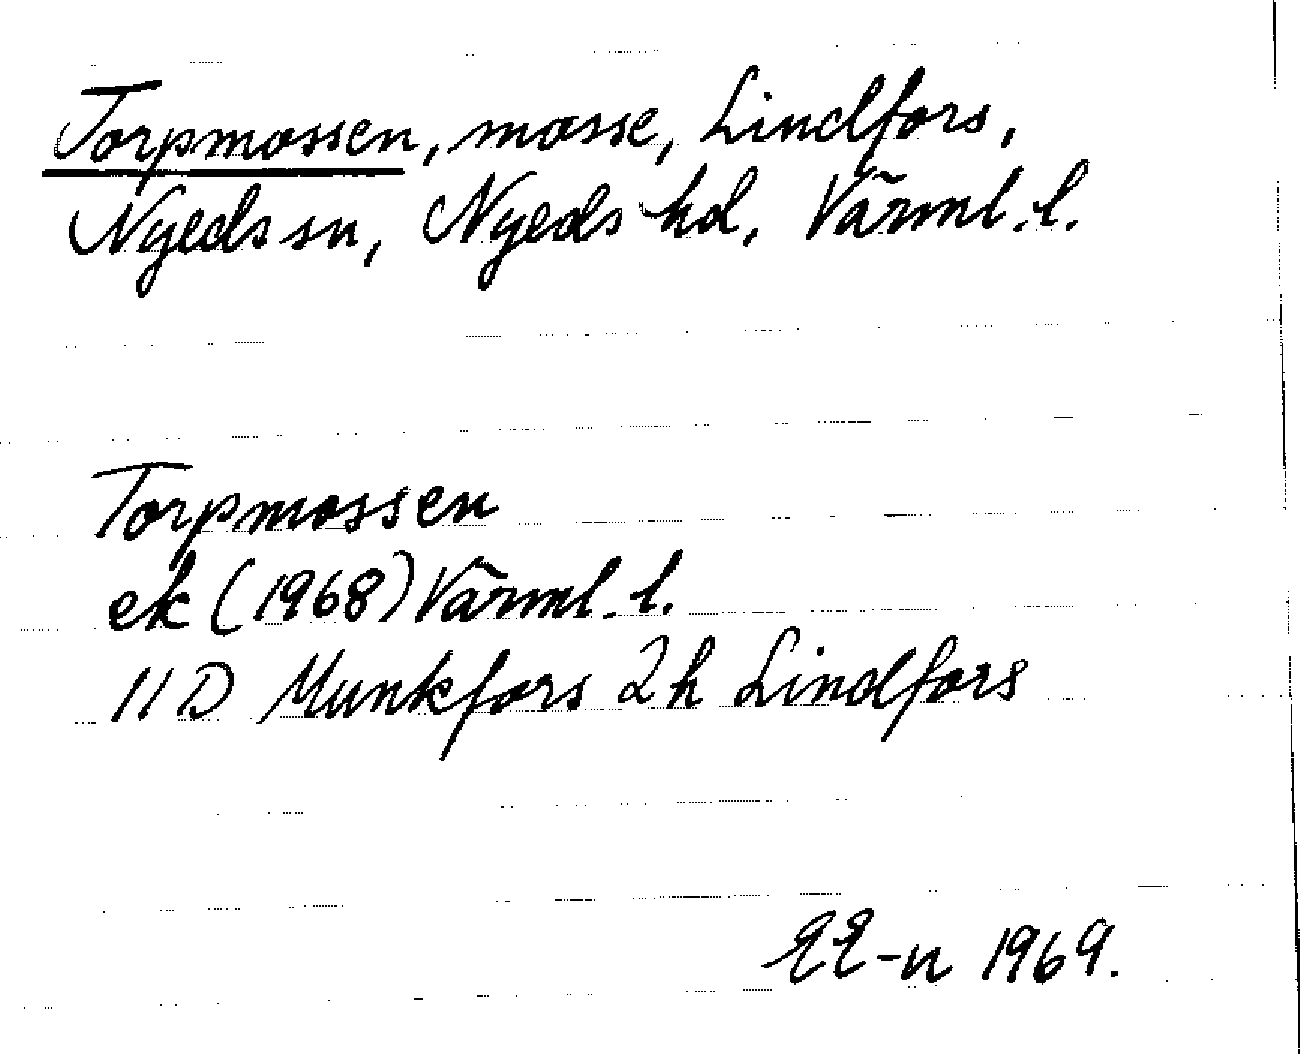 Torpmossen, mosse, Lindfors,
Nyeds sn, Nyeds hd, Värml. l.
Torpmossen
ek (1968) Värml. l.
11 D Munkfors 2h Lindfors
EE-n 1969.